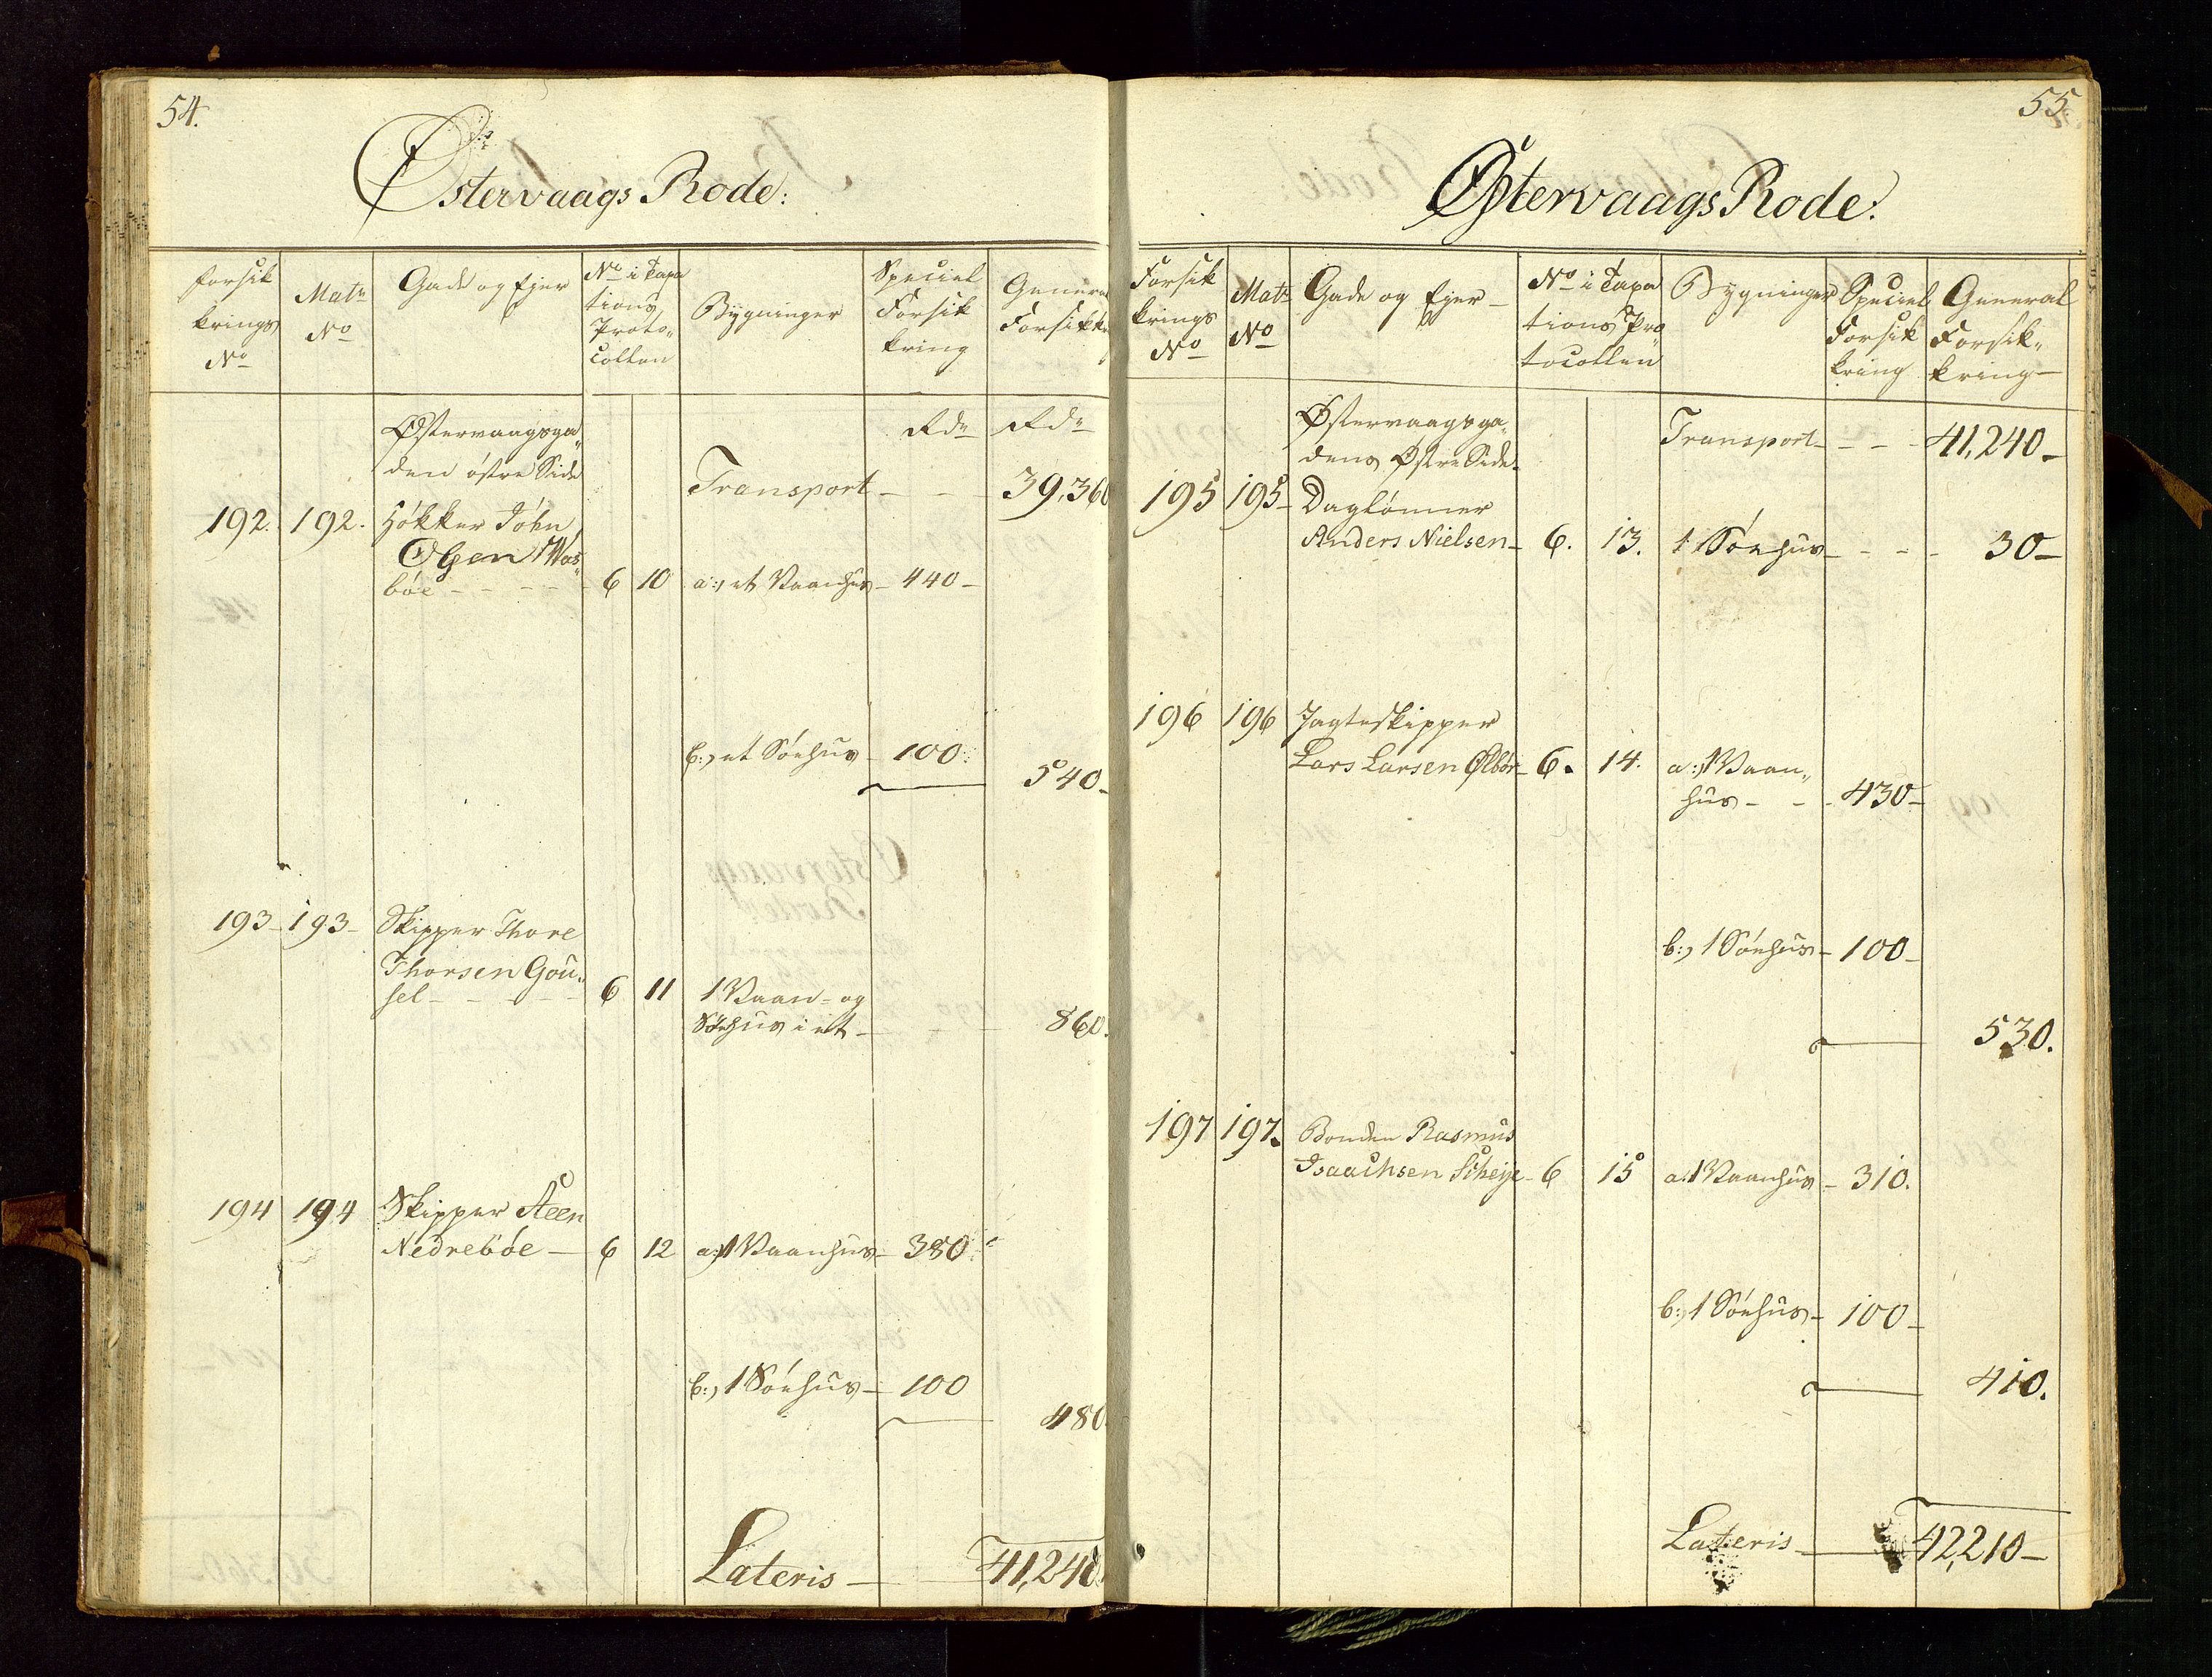 54.
Østervaags Rode:
Forsik
krings
No
Matr
No
Gade og Ejer
No i Taxa
tions
Proto-
collen
Bygninger
Speciel
Forsik
kring
General
Forsikkr
Østervaagsga-
den østre Side
Rdr
Rdr
Transport - - 39,360
192. 192. Høkker John
Olsen Wos-
bøe - - - - 6 10 a:, et Vaanhus - 440 -
b:, et Søehus - 100.
540 -
193 - 193 - Skipper Thore
Thorsen Gou-
sel - - - - 6 11 1 Vaan- og
Søehus i et - - - 860.
194 194 Skipper Steen
Nedrebøe - 6 12 a:, 1 Vaanhus - 380.
b:, 1 Søehus - 100
480.
Lateris - 41,240.
55.
Østervaags Rode:
Forsik
krings
No
Matr
No
Gade og Ejer -
No i Taxa
tions Pro
tocollen
Bygninger
Speciel
Forsik
kring
General
Forsik-
kring -
Østervaagsga-
dens Østre Side -
Transport - - - 41,240 -
195 195 - Daglønner
Anders Nielsen - 6. 13. 1 Søehus - - - - 30 -
196 196 Jagteskipper
Lars Larsen Ølbør - 6. 14. a:, 1 Vaan-
hus - - - 430 -
b:, 1 Søehus - 100 -
530.
197 197. Bonden Rasmus
Isaachsen Scheije - 6 15 a: 1 Vaanhus - 310.
b:, 1 Søehus - 100 -
410.
Lateris - 42,210 -